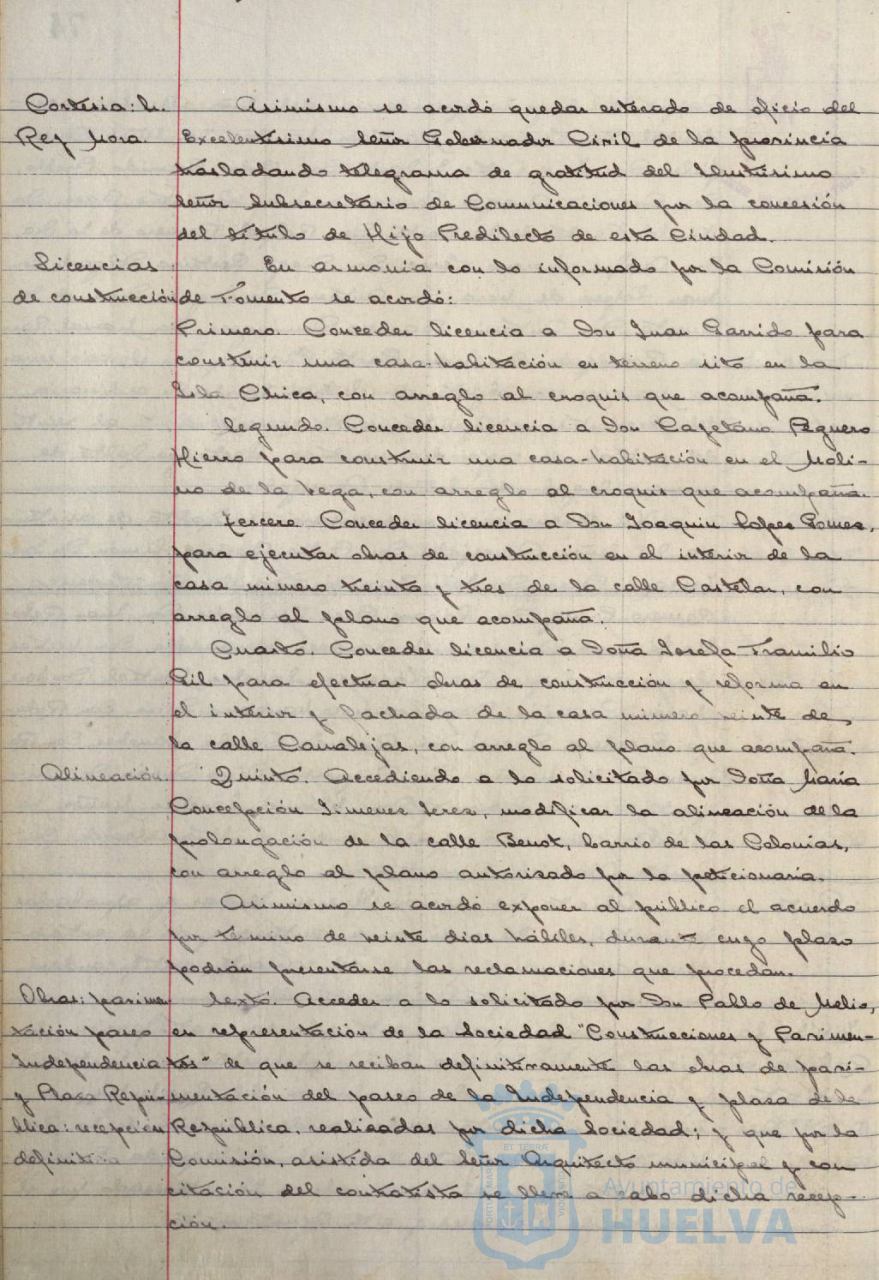 Cortesia: h. Asimismo se acordó quedar enterado de oficio del
Rey Mora. Excelentísimo Señor Gobernador Civil de la provincia
trasladando telegrama de gratitud del Ilustrísimo
Señor Subsecretario de Comunicaciones por la concesión
del título de Hijo Predilecto de esta Ciudad.
Licencias En armonía con lo informado por la Comisión
de construcción de Fomento se acordó:
Primero. Conceder licencia a Don Juan Garrido para
construir una casa-habitación en terreno sito en la
Isla Chica, con arreglo al croquis que acompaña.
Segundo. Conceder licencia a Don Cayetano Peguero
Hierro para construir una casa-habitación en el Moli-
no de la Vega, con arreglo al croquis que acompaña.
Tercero Conceder licencia a Don Joaquin Lopez Gomez,
para ejecutar obras de construcción en el interior de la
casa número treinta y tres de la calle Castelar, con
arreglo al plano que acompaña.
Cuarto. Conceder licencia a Doña Josefa Tramilio
Gil para efectuar obras de construcción y reforma en
el interior y fachada de la casa número veinte de
la calle Canalejas, con arreglo al plano que acompaña.
Alineación. Quinto. Accediendo a lo solicitado por Doña María
Concepción Jimenez Jerez, modificar la alineación de la
prolongación de la calle Benot, barrio de las Colonias,
con arreglo al plano autorizado por la peticionaria.
Asimismo se acordó exponer al público el acuerdo
por término de veinte días hábiles, durante cuyo plazo
podrán presentarse las reclamaciones que procedan.
Obras: pavimen Sexto. Acceder a lo solicitado por Don Pablo de Melio,
tación paseo en representación de la Sociedad "Construcciones y Pavimen-
Independencia tos" de que se reciban definitivamente las obras de pavi-
y Plaza Repú- mentación del paseo de la Independencia y plaza de la
blica: recepción República, realizadas por dicha Sociedad; y que por la
definitiva Comisión, asistida del Señor Arquitecto municipal y con
citación del contratista se lleve a cabo dicha recep-
ción.
Ayuntamiento de
HUELVA